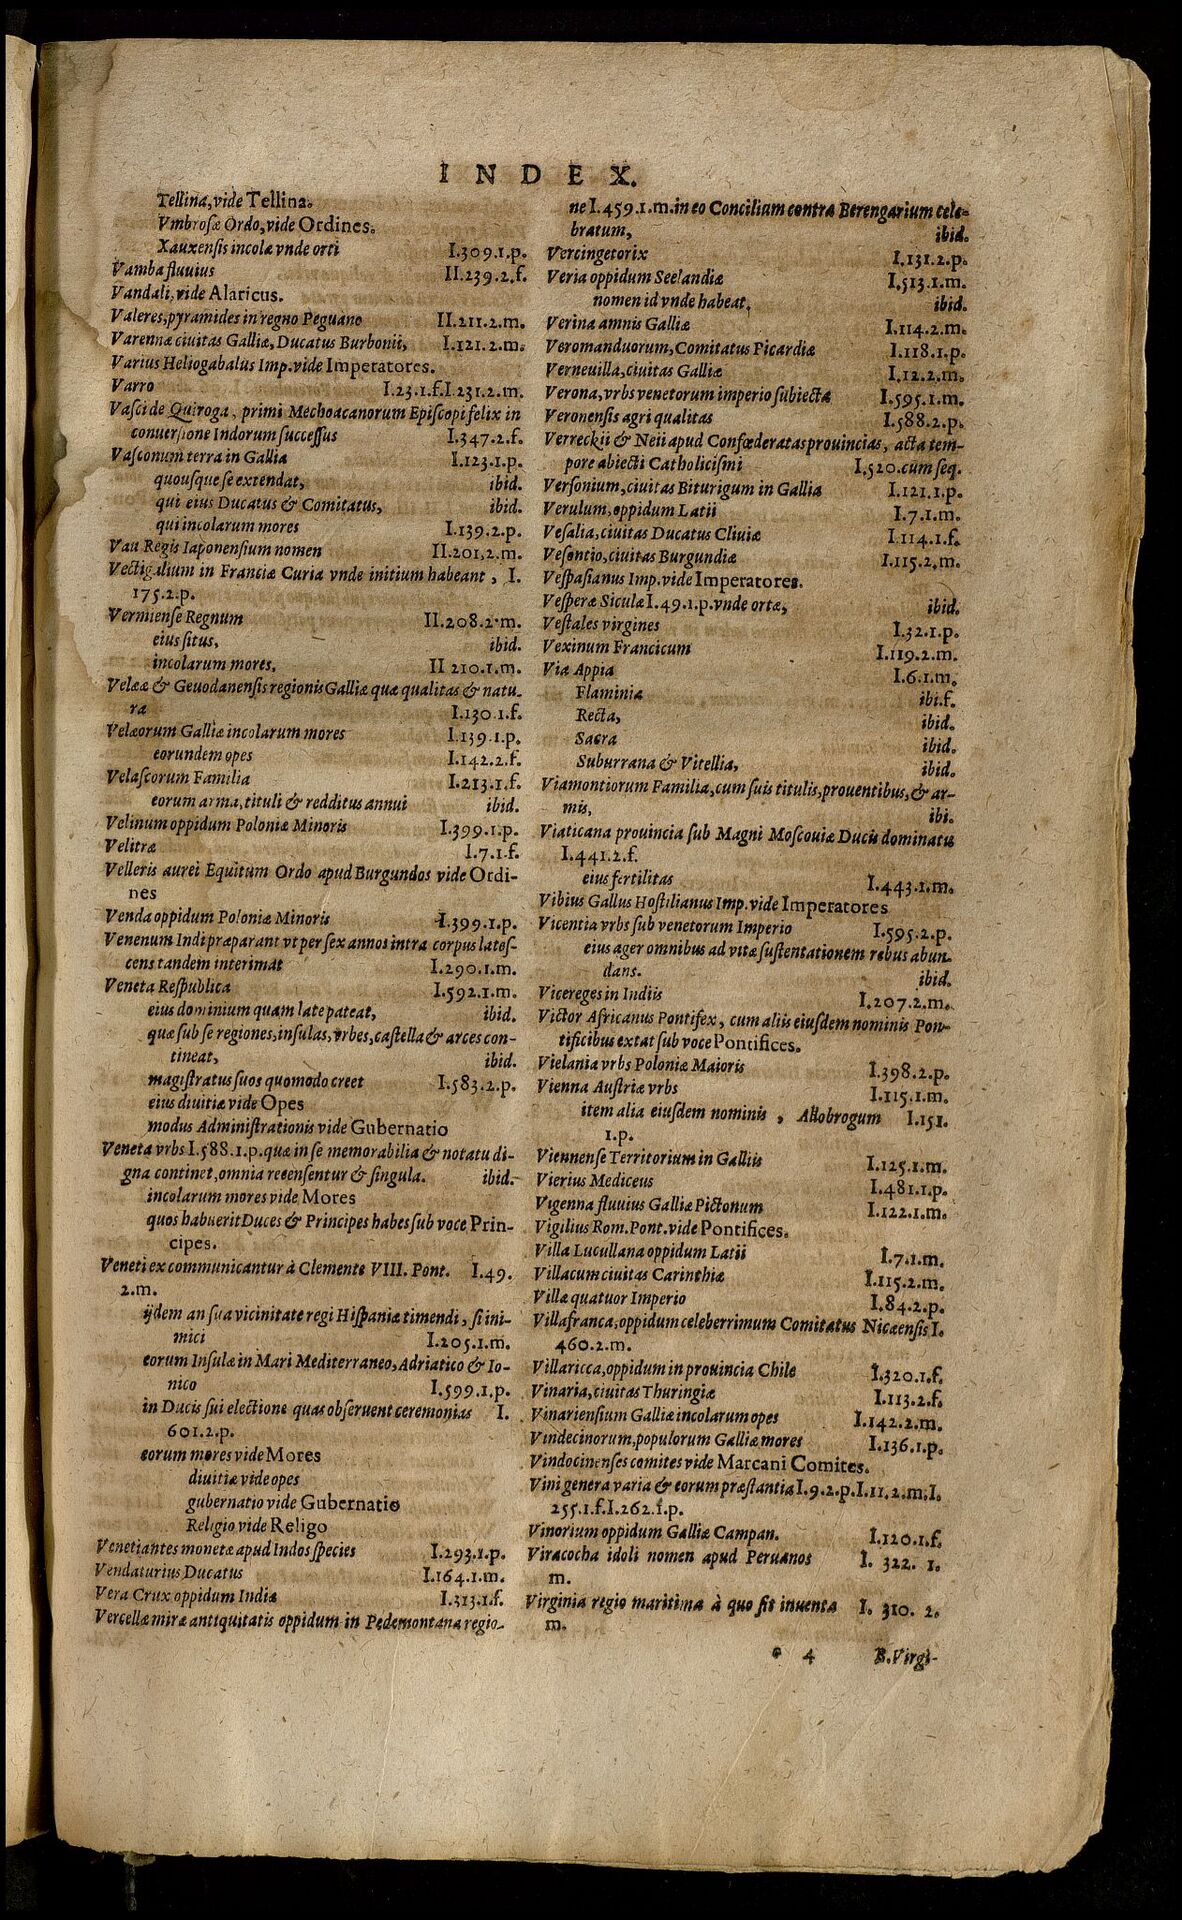 INDEX.
Tellina, vide Tellina.
Vmbrosæ Ordo, vide Ordines.
Xauxensis incolæ vnde orti I.309.1.p.
Vamba fluuius II.239.2.f.
Vandali, vide Alaricus.
Valeres, pyramides in regno Peguano II.211.2.m.
Varennæ ciuitas Galliæ, Ducatus Burbonii, I.121.2.m.
Varius Heliogabalus Imp. vide Imperatores.
Varro I.23.1.f.I.231.2.m.
Vasci de Quiroga, primi Mechoacanorum Episcopi felix in
conuersione Indorum successus I.347.2.f.
Vasconum terra in Gallia I.123.1.p.
quousque se extendat, ibid.
qui eius Ducatus & Comitatus, ibid.
qui incolarum mores I.139.2.p.
Vau Regis Iaponensium nomen II.201.2.m.
Vectigalium in Franciæ Curia vnde initium habeant, I.
175.2.p.
Vermiense Regnum II.208.2.m.
eius situs, ibid.
incolarum mores. II 210.1.m.
Velææ & Geuodanensis regionis Galliæ quæ qualitas & natu-
ra I.130.1.f.
Velæorum Galliæ incolarum mores I.139.1.p.
eorundem opes I.142.2.f.
Velascorum Familia I.213.1.f.
eorum arma, tituli & redditus annui ibid.
Velinum oppidum Poloniæ Minoris I.399.1.p.
Velitræ I.7.1.f.
Velleris aurei Equitum Ordo apud Burgundos vide Ordi-
nes
Venda oppidum Poloniæ Minoris I.399.1.p.
Venenum Indi præparant vt per sex annos intra corpus lates-
cens tandem interimat I.290.1.m.
Veneta Respublica I.592.1.m.
eius dominium quam late pateat, ibid.
quæ sub se regiones, insulas, vrbes, castella & arces con-
tineat, ibid.
magistratus suos quomodo creet I.583.2.p.
eius diuitiæ vide Opes
modus Administrationis vide Gubernatio
Veneta vrbs I.588.1.p. quæ in se memorabilia & notatu di-
gna continet, omnia recensentur & singula. ibid.
incolarum mores vide Mores
quos habuerit Duces & Principes habes sub voce Prin-
cipes.
Veneti excommunicantur à Clemente VIII. Pont. I.49.
2.m.
ijdem an sua vicinitate regi Hispaniæ timendi, si ini-
mici I.205.1.m.
eorum Insulæ in Mari Mediterraneo, Adriatico & Io-
nico I.599.1.p.
in Ducis sui electione quas obseruent ceremonias I.
601.2.p.
eorum mores vide Mores
diuitiæ vide opes
gubernatio vide Gubernatio
Religio vide Religo
Venetiantes monetæ apud Indos species I.293.1.p.
Vendaturius Ducatus I.164.1.m.
Vera Crux oppidum Indiæ I.313.1.f.
Vercellæ miræ antiquitatis oppidum in Pedemontana regio-
ne I.459.1.m. in eo Concilium contra Berengarium cele-
bratum, ibid.
Vercingetorix I.131.2.p.
Veria oppidum Seelandiæ I.513.1.m.
nomen id vnde habeat, ibid.
Verina amnis Galliæ I.114.2.m.
Veromanduorum, Comitatus Picardiæ I.118.1.p.
Verneuilla, ciuitas Galliæ I.12.2.m.
Verona, vrbs venetorum imperio subiecta I.595.1.m.
Veronensis agri qualitas I.588.2.p.
Verreckii & Neii apud Confœderatas prouincias, acta tem-
pore abiecti Catholicismi I.520.cum seq.
Versonium, ciuitas Biturigum in Gallia I.121.1.p.
Verulum, oppidum Latii I.7.1.m.
Vesalia, ciuitas Ducatus Cliuiæ I.114.1.f.
Vesontio, ciuitas Burgundiæ I.115.2.m.
Vespasianus Imp. vide Imperatores.
Vesperæ Siculæ I.49.1.p. vnde ortæ, ibid.
Vestales virgines I.32.1.p.
Vexinum Francicum I.119.2.m.
Via Appia I.6.1.m.
Flaminia ibi.f.
Recta, ibid.
Sacra ibid.
Suburrana & Vitellia, ibid.
Viamontiorum Familia, cum suis titulis, prouentibus, & ar-
mis, ibi.
Viaticana prouincia sub Magni Moscouiæ Ducis dominatu
I.441.2.f.
eius fertilitas I.443.1.m.
Vibius Gallus Hostilianus Imp. vide Imperatores
Vicentia vrbs sub venetorum Imperio I.595.2.p.
eius ager omnibus ad vitæ sustentationem rebus abun-
dans. ibid.
Vicereges in Indiis I.207.2.m.
Victor Africanus Pontifex, cum aliis eiusdem nominis Pon-
tificibus extat sub voce Pontifices.
Vielania vrbs Poloniæ Maioris I.398.2.p.
Vienna Austriæ vrbs I.115.1.m.
item alia eiusdem nominis, Allobrogum I.151.
1.p.
Viennense Territorium in Galliis I.125.1.m.
Vierius Mediceus I.481.1.p.
Vigenna fluuius Galliæ Pictonum I.122.1.m.
Vigilius Rom. Pont. vide Pontifices.
Villa Lucullana oppidum Latii I.7.1.m.
Villacum ciuitas Carinthiæ I.115.2.m.
Villæ quatuor Imperio I.84.2.p.
Villafranca, oppidum celeberrimum Comitatus Nicæensis I.
460.2.m.
Villaricca, oppidum in prouincia Chile I.320.1.f.
Vinaria, ciuitas Thuringiæ I.113.2.f.
Vinariensium Galliæ incolarum opes I.142.2.m.
Vindecinorum, populorum Galliæ mores I.136.1.p.
Vindocinenses comites vide Marcani Comites.
Vini genera varia & eorum præstantia I.9.2.p.I.11.2.m.I.
255.1.f.I.262.f.p.
Vinorium oppidum Galliæ Campan. I.120.1.f.
Viracocha idoli nomen apud Peruanos I. 322. 1.
m.
Virginia regio maritima à quo sit inuenta I. 310. 2.
m.
e 4 B.Virgi-